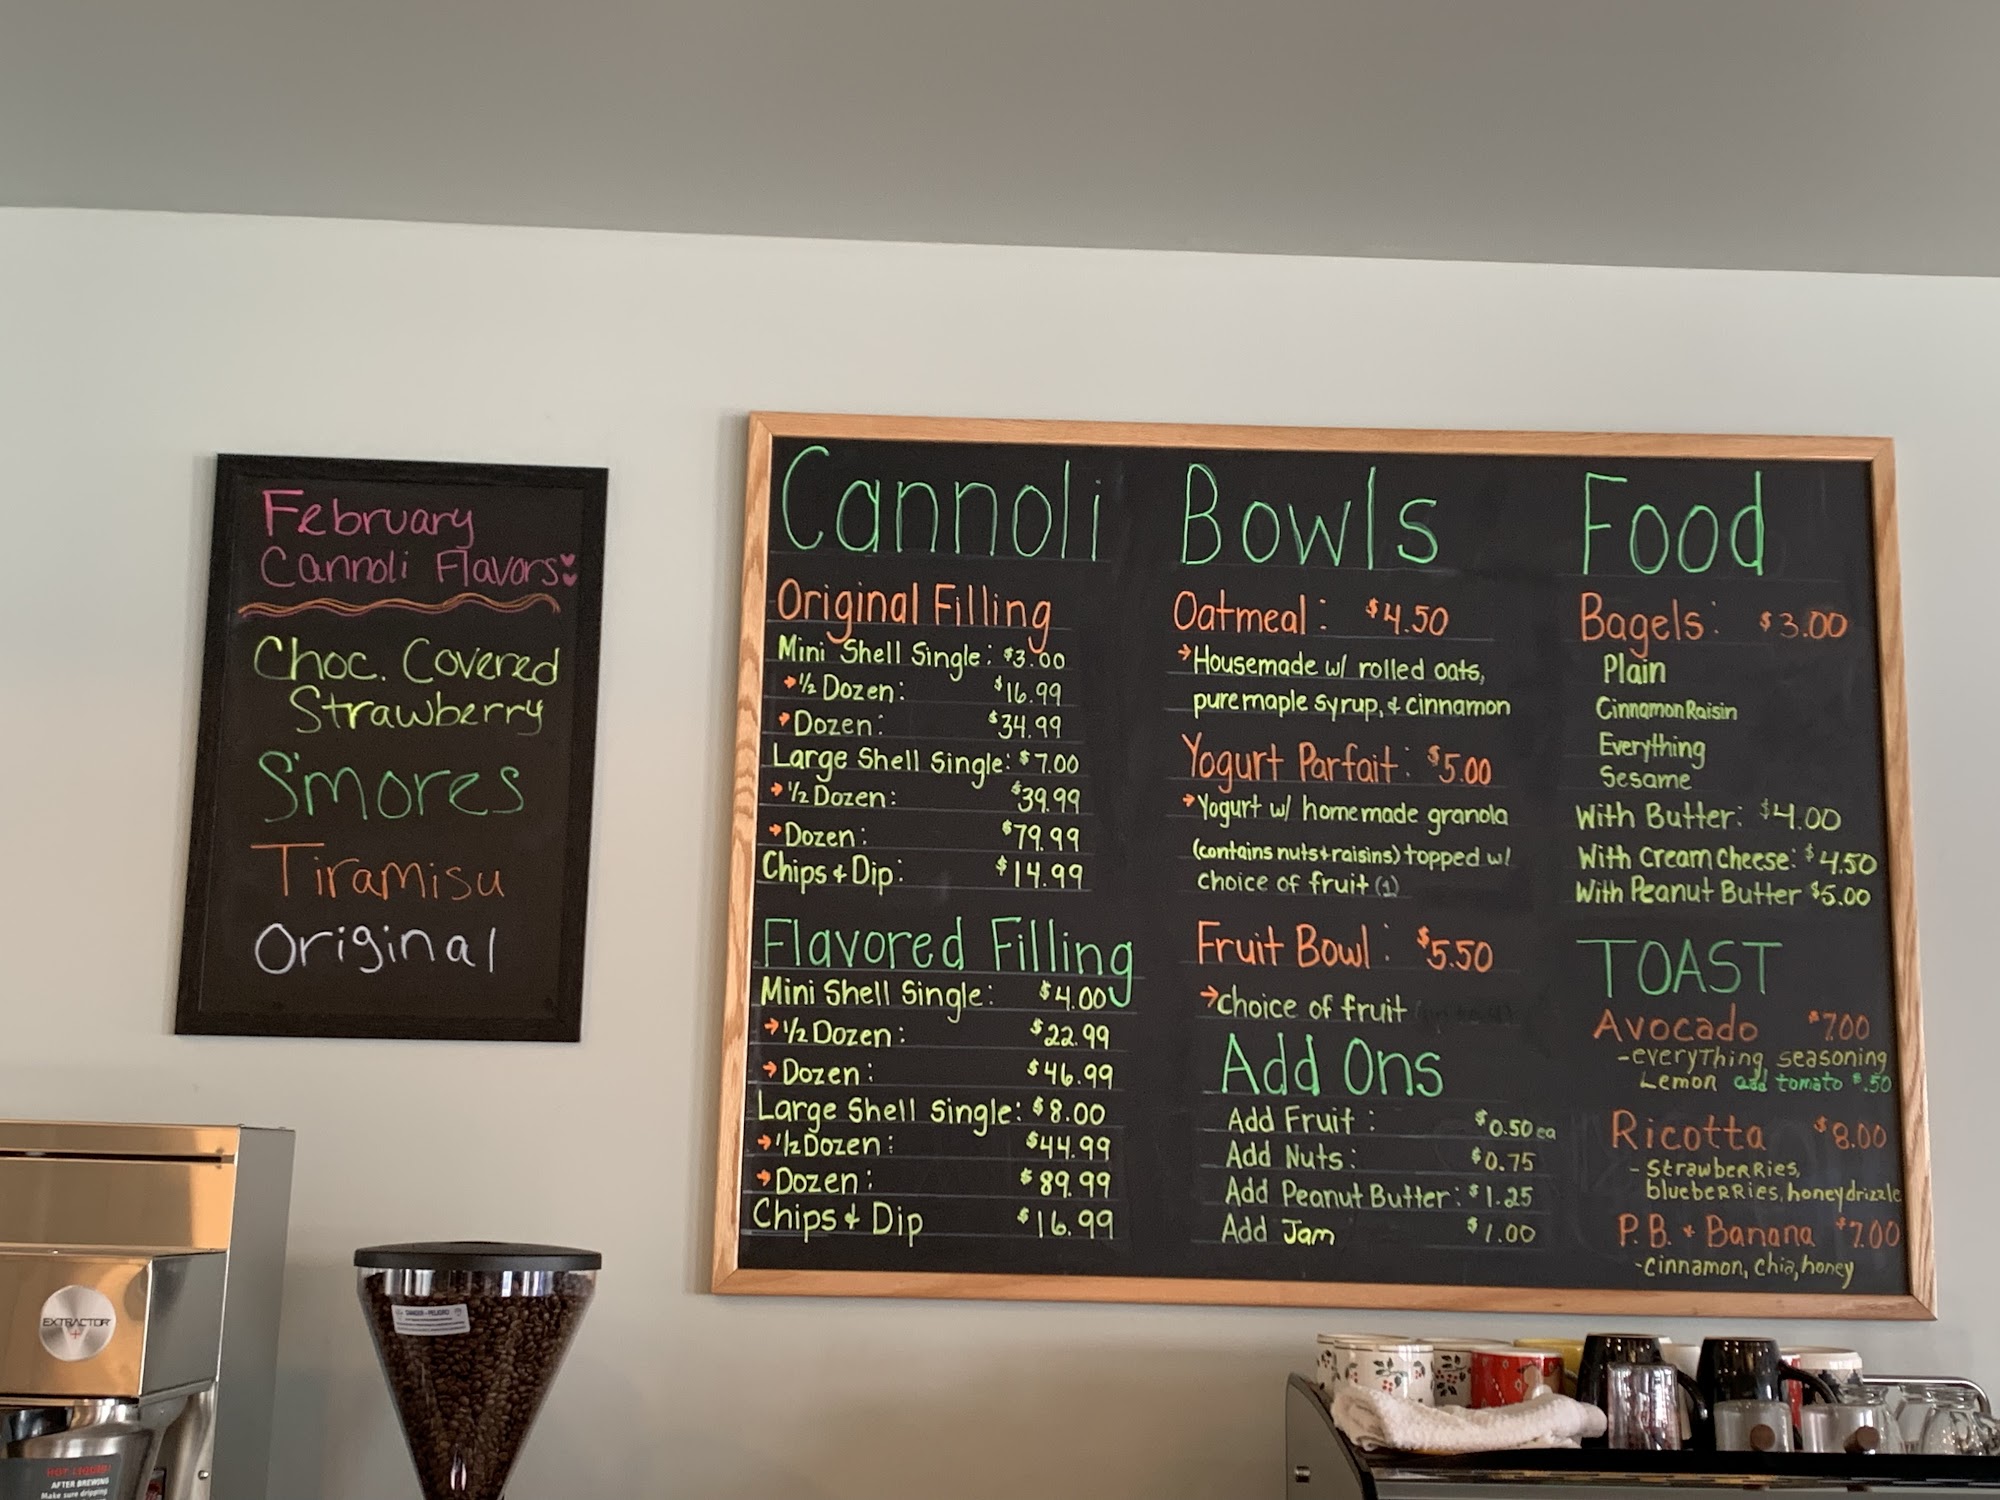 February
Cannoli Flavors
Choc. Covered
Strawberry
S'mores
Tiramisu
Original
Cannoli
Original Filling
Mini Shell Single: $3.00
→1/2 Dozen: $16.99
→Dozen: $34.99
Large Shell Single: $7.00
→1/2 Dozen: $39.99
→Dozen: $79.99
Chips & Dip: $14.99
Flavored Filling
Mini Shell Single: $4.00
→1/2 Dozen: $22.99
→Dozen: $46.99
Large Shell Single: $8.00
→1/2 Dozen: $44.99
→Dozen: $89.99
Chips & Dip $16.99
Bowls
Oatmeal: $4.50
→Housemade w/ rolled oats,
pure maple syrup, & cinnamon
Yogurt Parfait: $5.00
→Yogurt w/ homemade granola
(contains nuts+raisins) topped w/
choice of fruit (1)
Fruit Bowl: $5.50
→choice of fruit
Add Ons
Add Fruit: $0.50 ea
Add Nuts: $0.75
Add Peanut Butter: $1.25
Add Jam $1.00
Food
Bagels: $3.00
Plain
Cinnamon Raisin
Everything
Sesame
With Butter: $4.00
With Cream Cheese: $4.50
With Peanut Butter $5.00
TOAST
Avocado $7.00
-everything seasoning
Lemon add tomato $.50
Ricotta $8.00
- Strawberries,
blueberries, honey drizzle
P.B. + Banana $7.00
-cinnamon, chia, honey
EXTRACTOR
HOT LIQUID!
AFTER BREWING
Make sure dripping
DANGER - PELIGRO